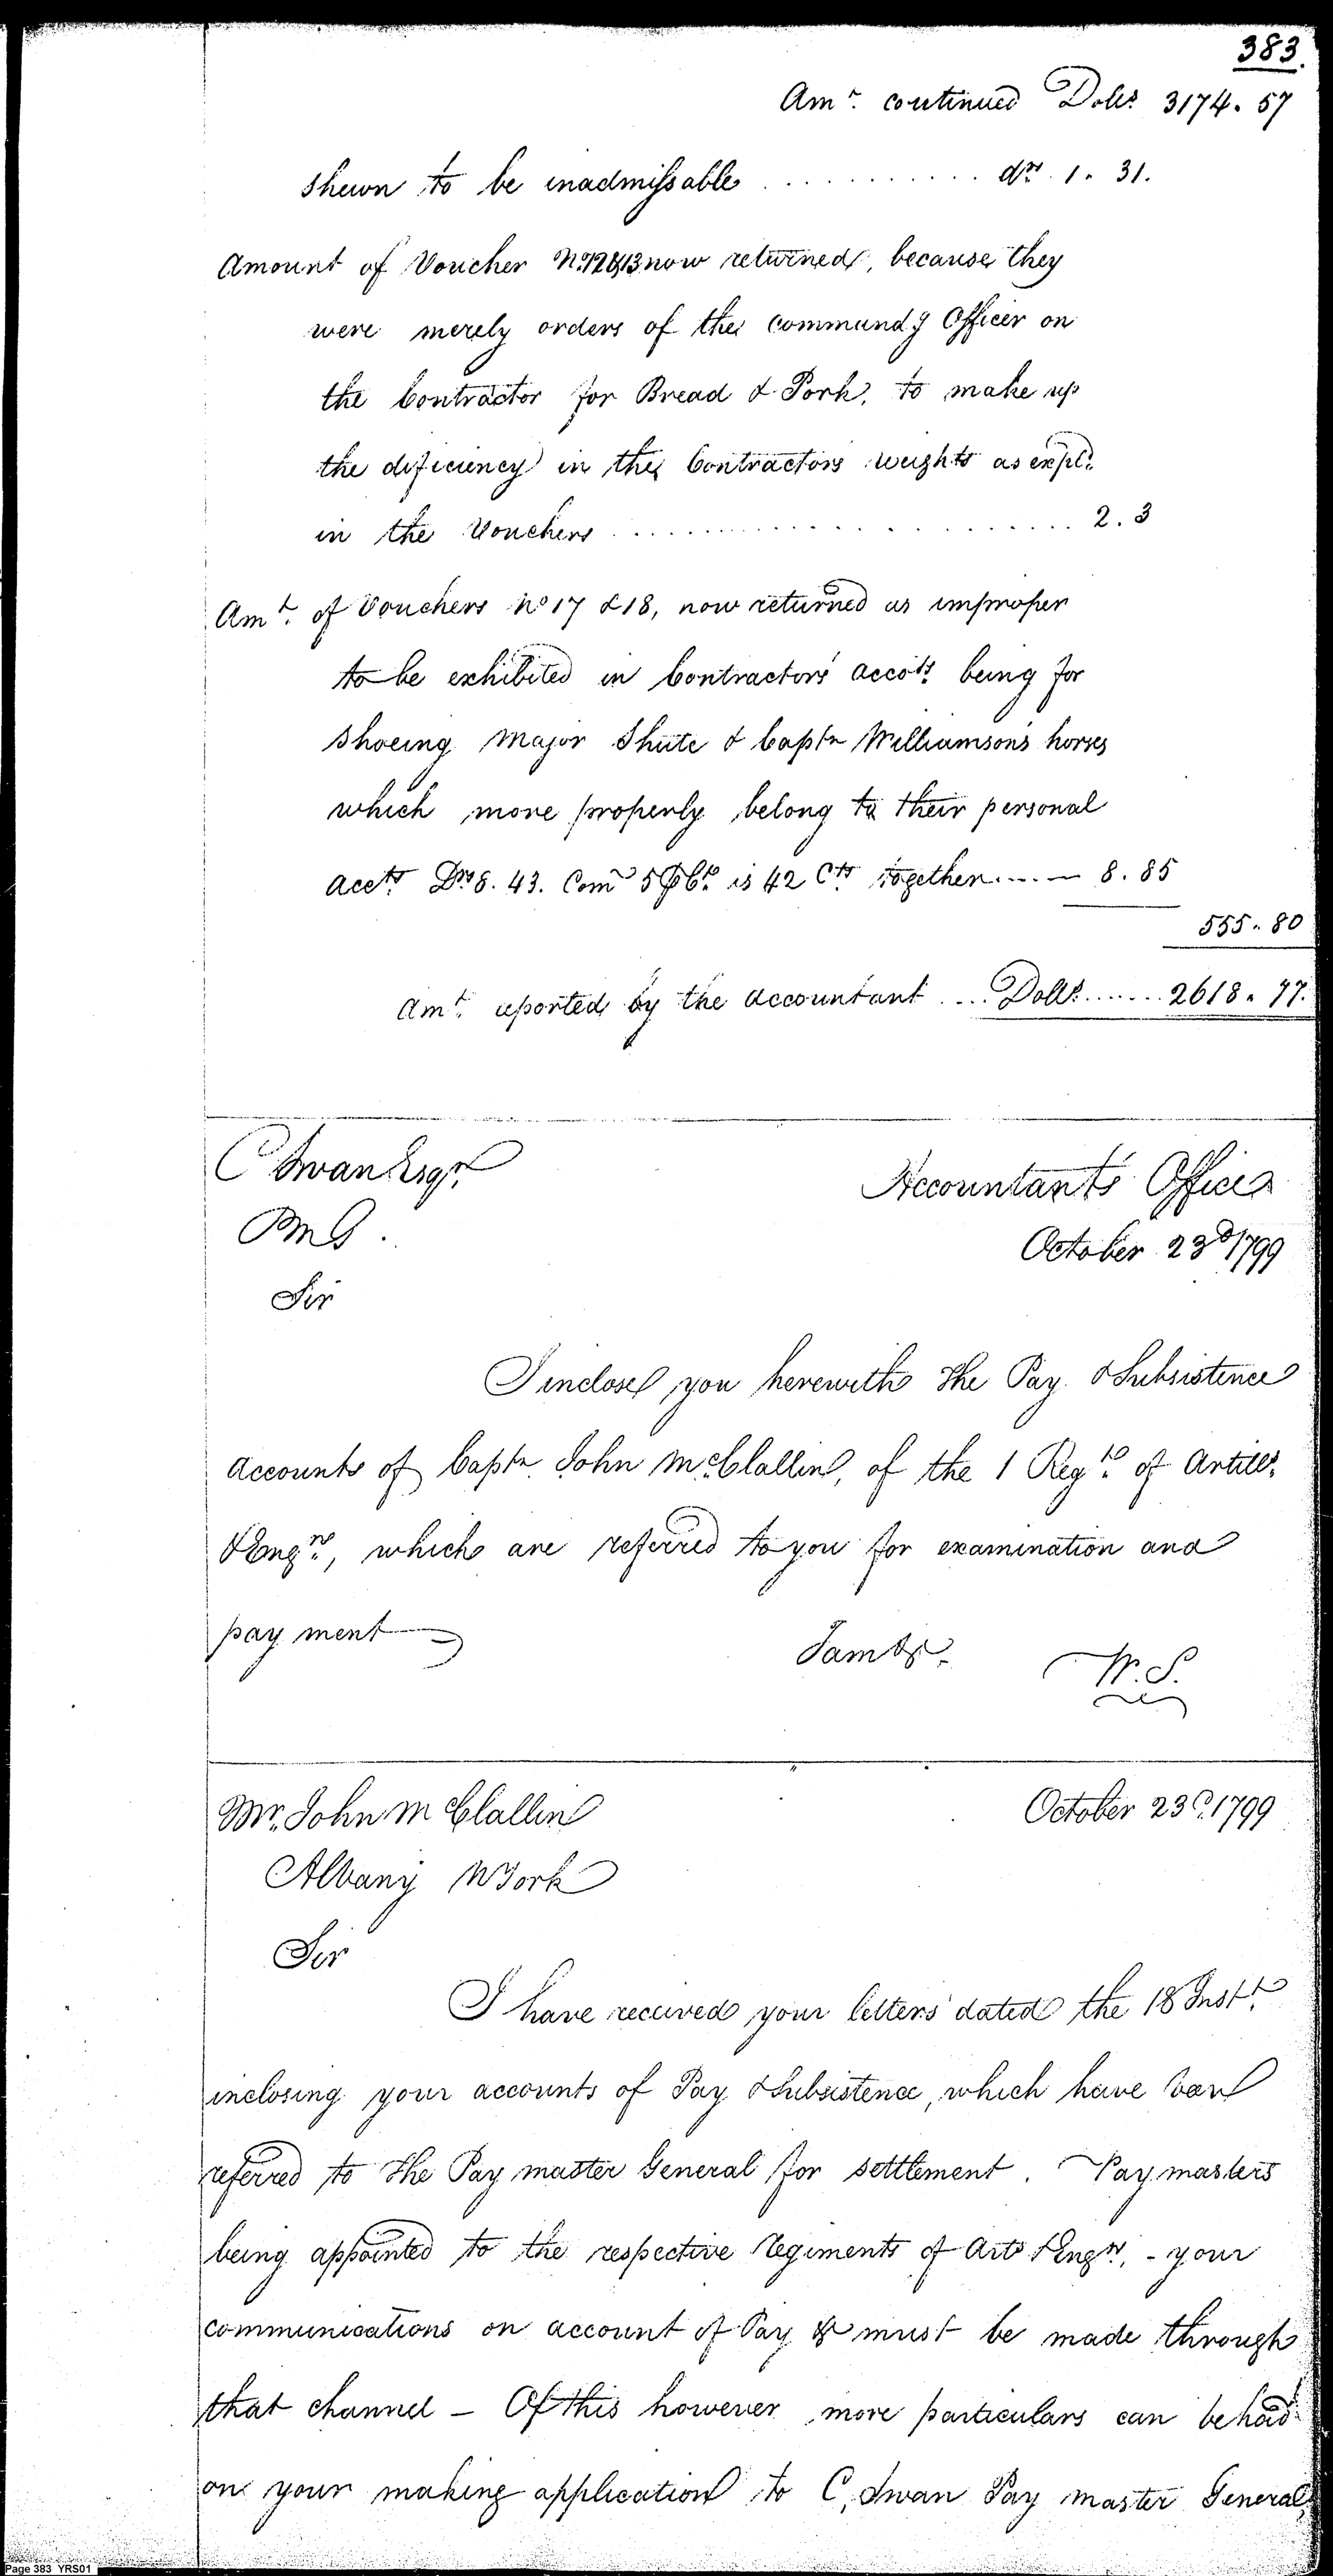 383.
Amt. continued Dolls. 3174.57
shewn to be inadmissable ........... drs 1.31.
Amount of Voucher No. 12 & 13 now returned, because they
were merely orders of the command'g Officer on
the Contractor for Bread & Pork, to make up
the dificiency in the Contractors weights as expld.
in the Vouchers ..................... 2.3
Amt. of Vouchers No 17 & 18, now returned as improper
to be exhibited in Contractors' accots. being for
shoeing Major Shute & Captn Williamson's horses
which more properly belong to their personal
accts Drs 8.43. Comn 5 ⅌ Ct. is 42 Cts together..... 8.85
555.80
Amt. reported by the Accountant .... Dolls....... 2618.77.
C Swan Esqr.
PMG.
Accountant's Office
October 23d 1799
Sir
I inclose you herewith the Pay & Subsistence
accounts of Captn. John McClallin, of the 1 Regt. of Artills.
& Engrs., which are referred to you for examination and
payment
I am &c.
W.S.
Mr. John McClallin
October 23d. 1799
Albany NYork
Sir
I have received your letters dated the 18 Instt.
inclosing your accounts of Pay & Subsistence, which have been
referred to the Pay master General for settlement. Paymasters
being appointed to the respective Regiments of Arts & Engrs, - your
communications on account of Pay &c must be made through
that channel - Of this however more particulars can be had
on your making application to C, Swan Pay master General,
Page 383 YRS01